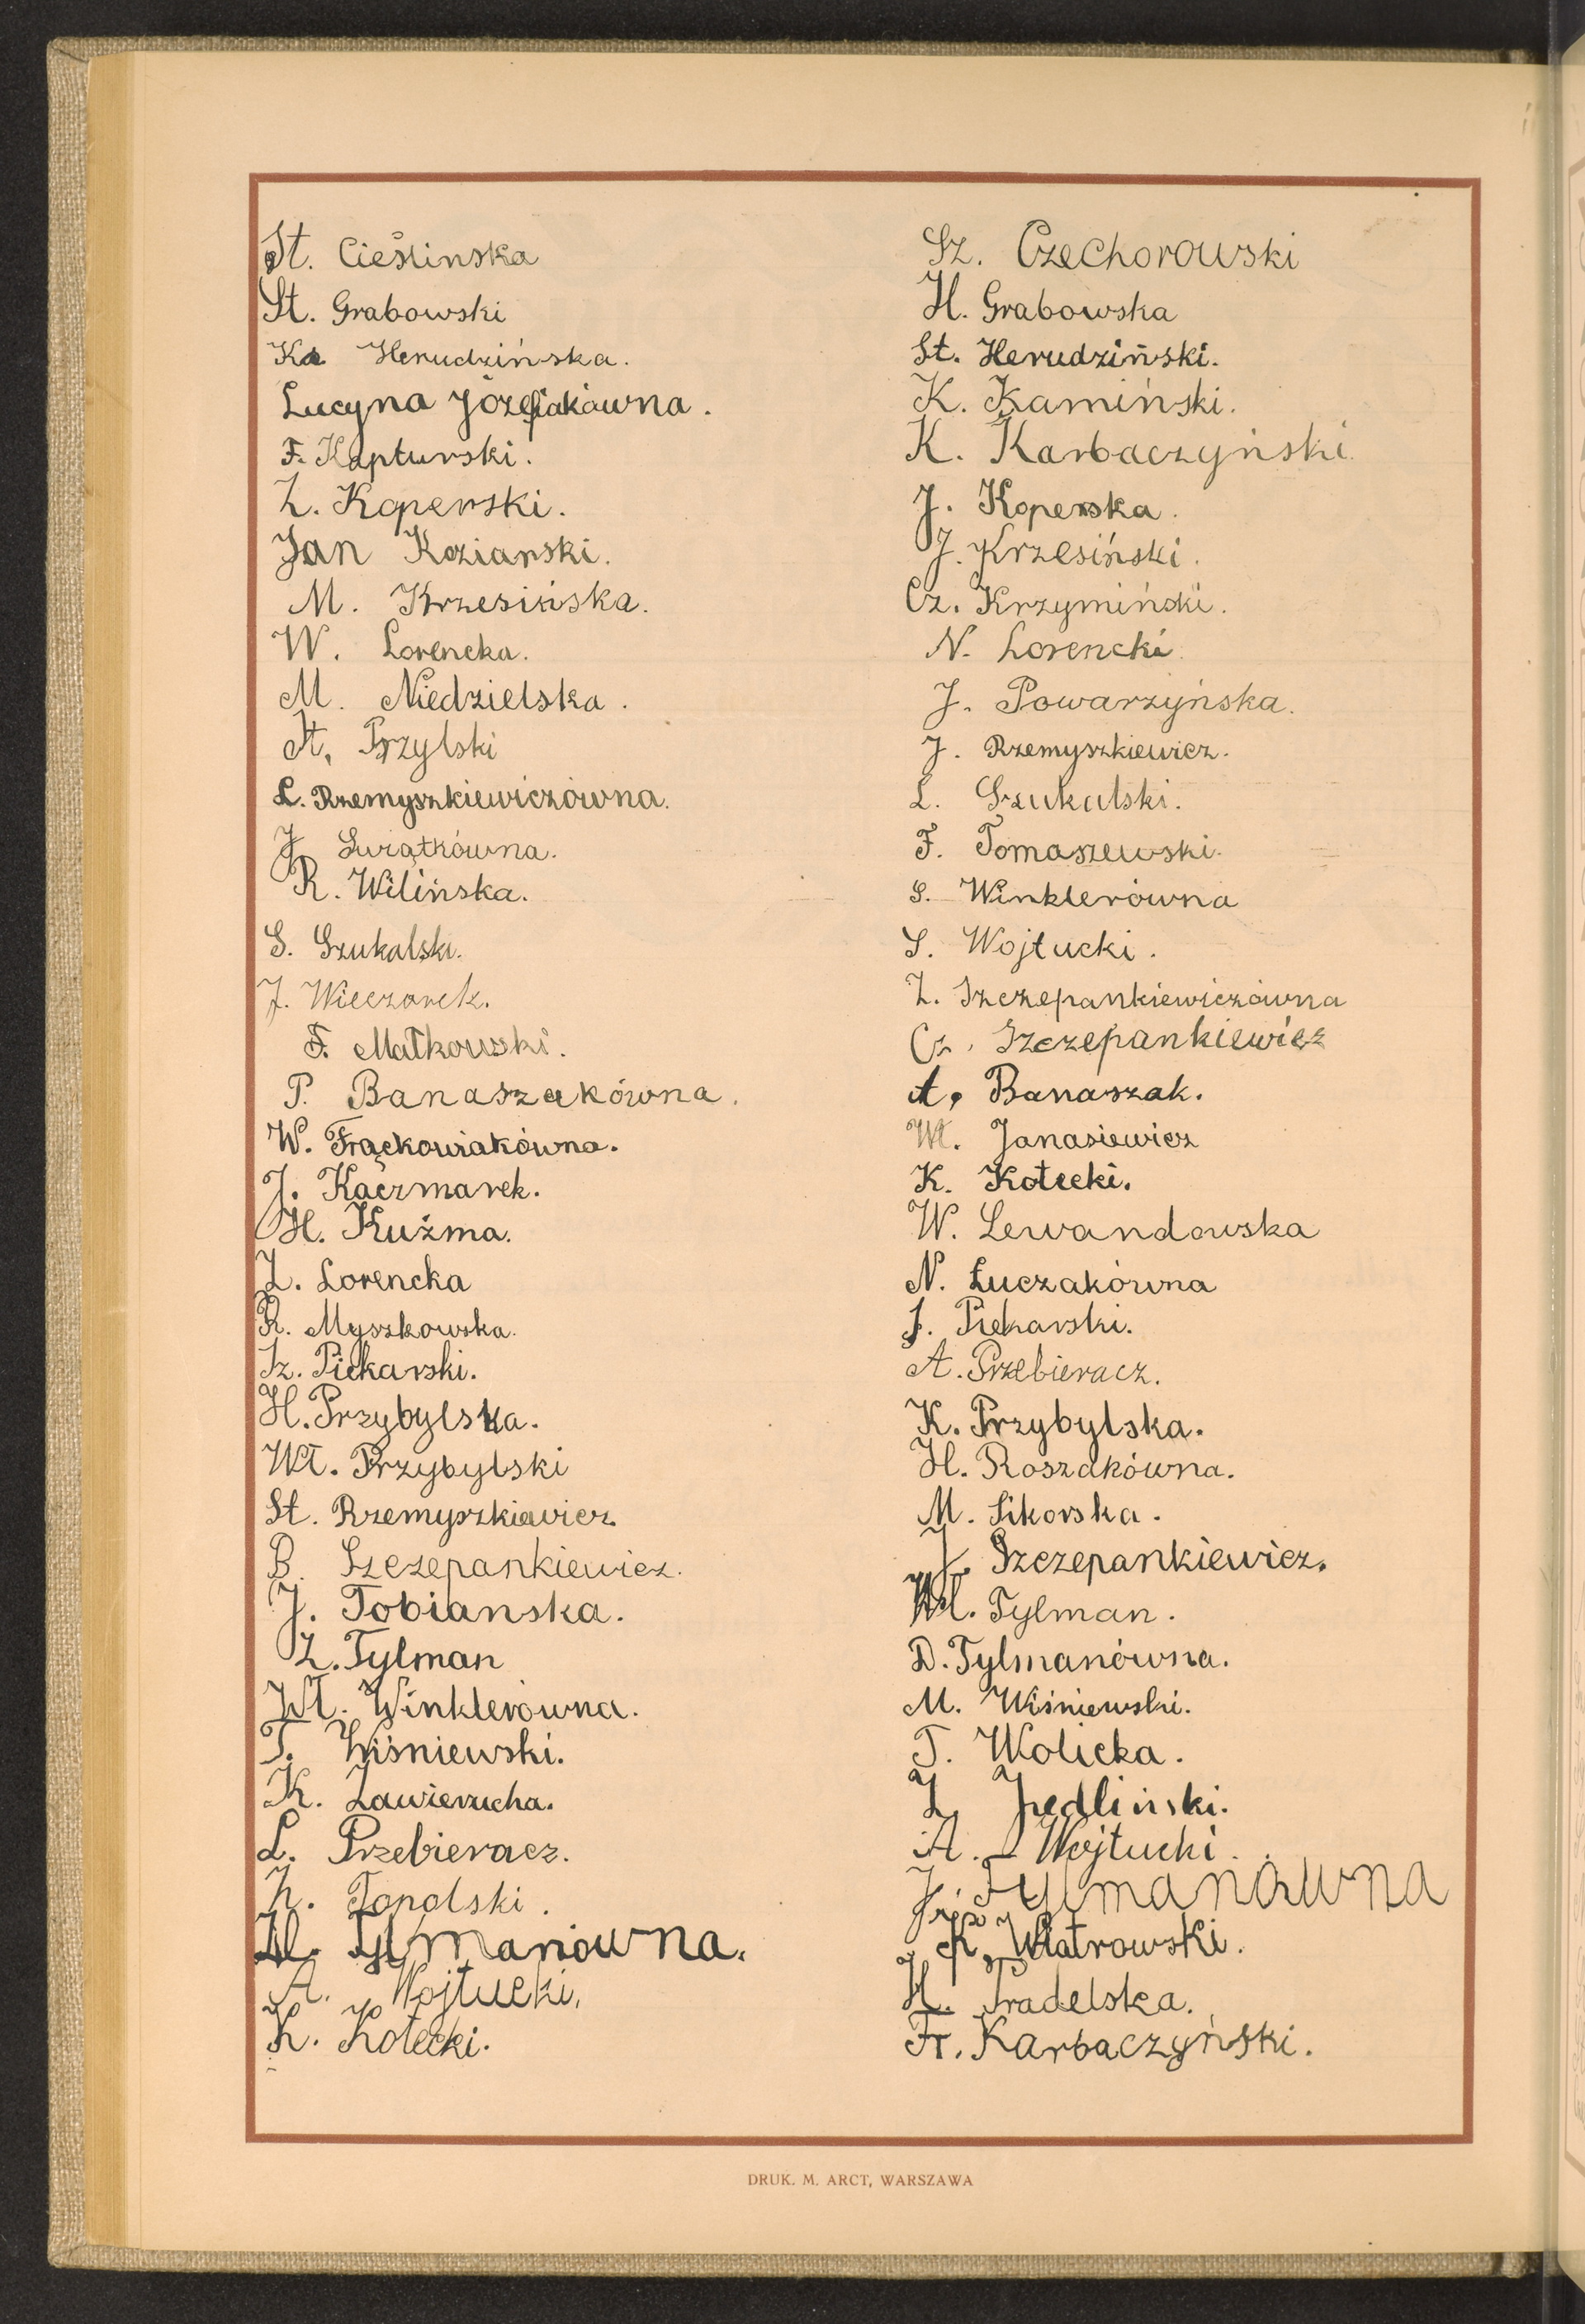 St. Cieślinska
St. Grabowski
Ka Herudzińska.
Lucyna Józefiakówna.
F. Kapturski.
Z. Koperski.
Jan Kozianski.
M. Krzesińska.
W. Lorencka.
M. Niedzielska.
St. Przylski
L. Rzemyszkiewiczówna.
J Swiątkówna.
R. Wilińska.
S. Szukalski.
J. Wieczorek.
F. Małkowski.
P. Banaszakówna.
W. Frąckowiakówna.
J. Kaczmarek.
H. Kuźma.
Z. Lorencka
R. Myszkowska.
Sz. Piekarski.
H. Przybylska.
Wł. Przybylski
St. Rzemyszkiewicz.
B. Szczepankiewicz.
J. Tobianska.
Z. Tylman
Wł. Winklerówna.
T. Wiśniewski.
K. Zawierucha.
L. Przebieracz.
Z. Topolski.
H. Tylmanówna.
A. Wojtucki.
K. Kotecki.
Sz. Czechorowski
H. Grabowska
St. Herudziński.
K. Kamiński.
K. Karbaczyński.
J. Koperska.
J. Krzesiński.
Cz. Krzymiński.
N. Lorencki.
J. Powarzyńska.
J. Rzemyszkiewicz.
L. Szukalski.
F. Tomaszewski.
S. Winklerówna
S. Wojtucki.
Z. Szczepankiewiczówna
Cz. Szczepankiewicz
A. Banaszak.
Wł. Janasiewicz
K. Kotecki.
W. Lewandowska
N. Łuczakówna
J. Piekarski.
A. Przebieracz.
K. Przybylska.
H. Roszakówna.
M. Sikorska.
J. Szczepankiewicz.
Wł. Tylman.
D. Tylmanówna.
M. Wiśniewski.
T. Wolicka.
Z Jedliński.
A. Wojtucki.
J. Tylmanówna
K. Wiatrowski.
H. Pradelska.
Fr. Karbaczyński.
DRUK. M. ARCT, WARSZAWA